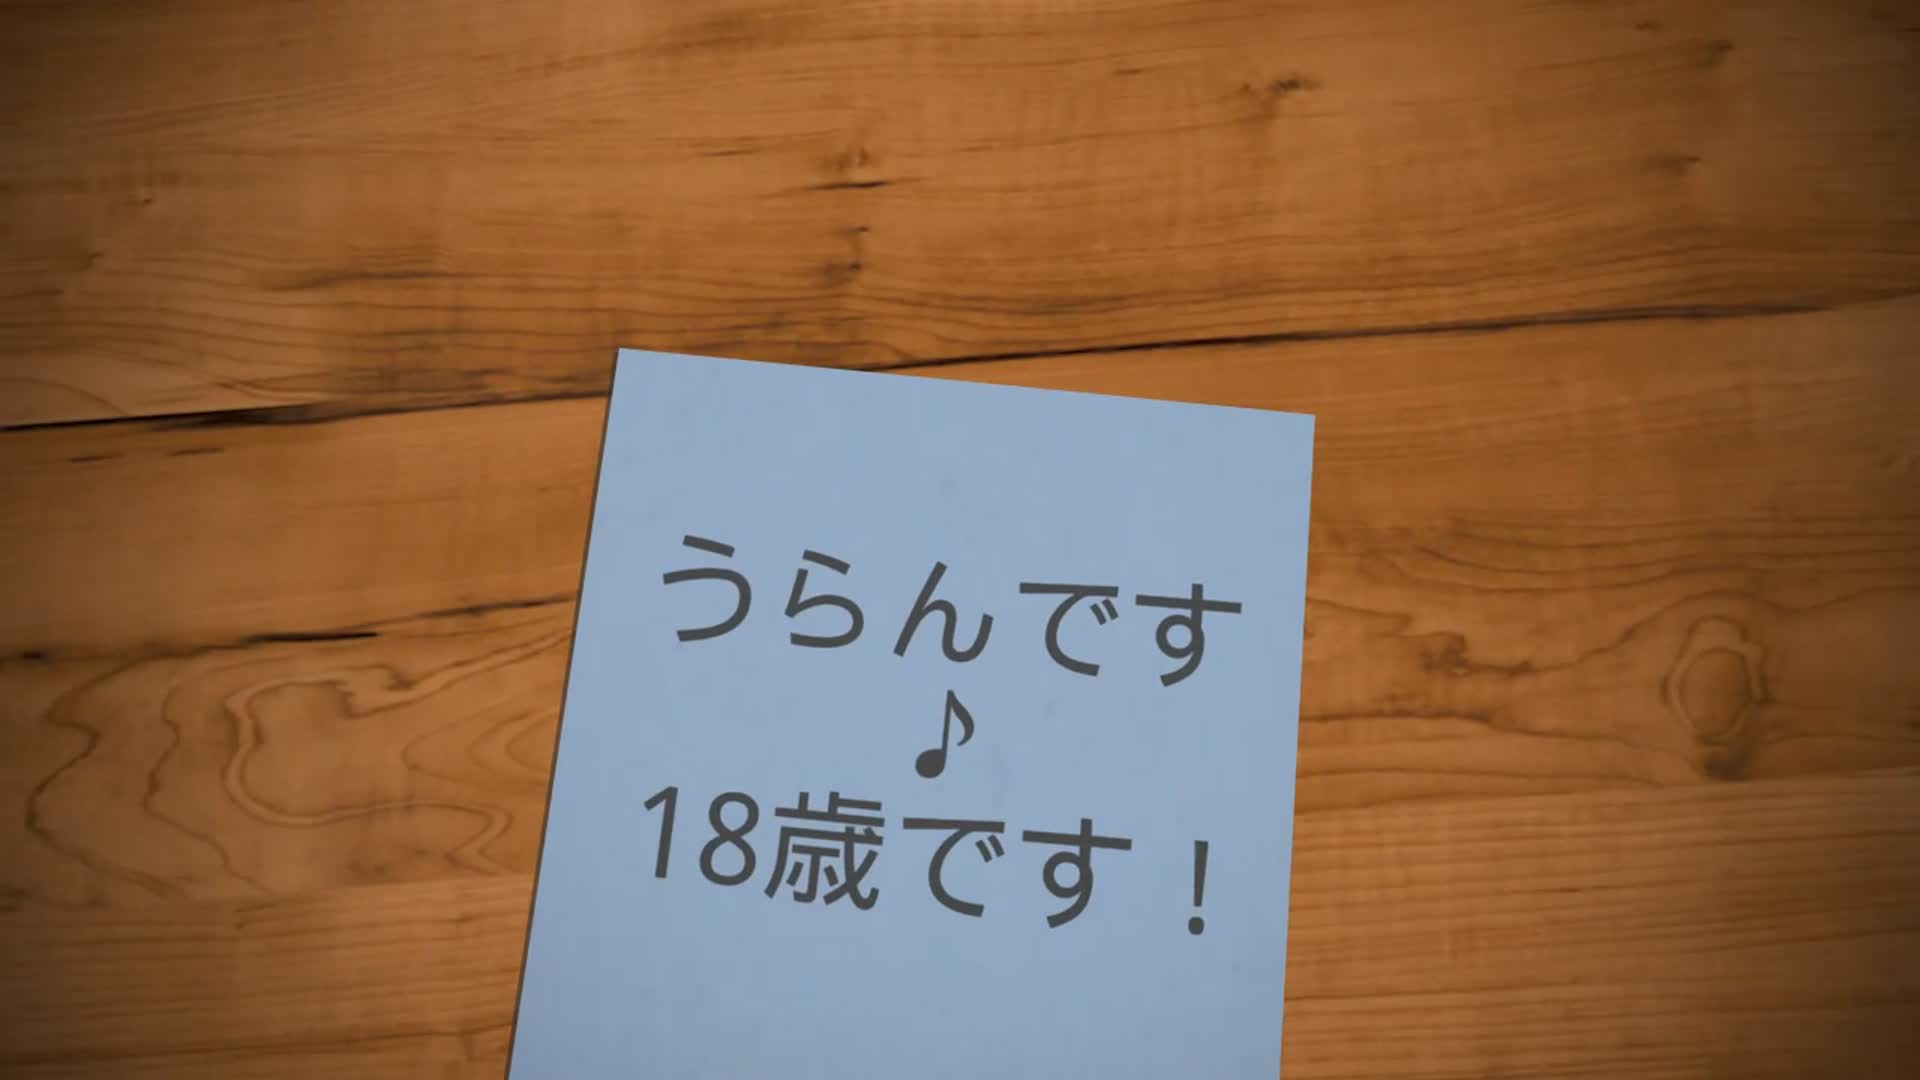 うらんです
♪
18歳です！